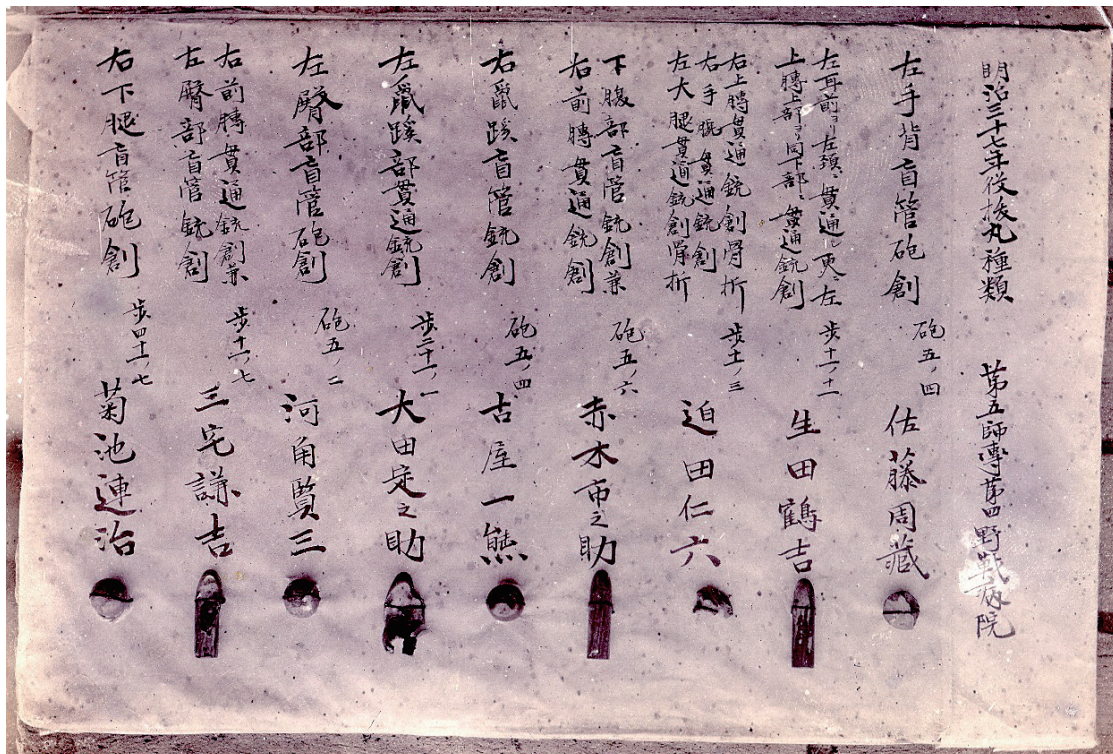 明治三十七年役抜丸種類　第五師団第四野戦病院
左手背盲管砲創　砲五ノ四　佐藤周蔵
左耳前ヨリ左頚ニ貫通シ更ニ左
上膊上部ヨリ同下部ニ貫通銃創　歩十一ノ十一　生田鶴吉
右上膊貫通銃創骨折
右手腕貫通銃創
左大腿貫通銃創骨折　歩十一ノ三　迫田仁六
下腹部盲管銃創兼
右前膊貫通銃創　砲五ノ六　赤木市之助
右鼠蹊盲管銃創　砲五ノ四　古屋一熊
左鼠蹊部貫通銃創　歩二十一ノ一　大田定之助
左臀部盲管砲創　砲五ノ二　河角賢三
右前膊貫通銃創兼
左臀部盲管銃創　歩十一ノ七　三宅謙吉
右下腿盲管砲創　歩四十一ノ七　菊池連治